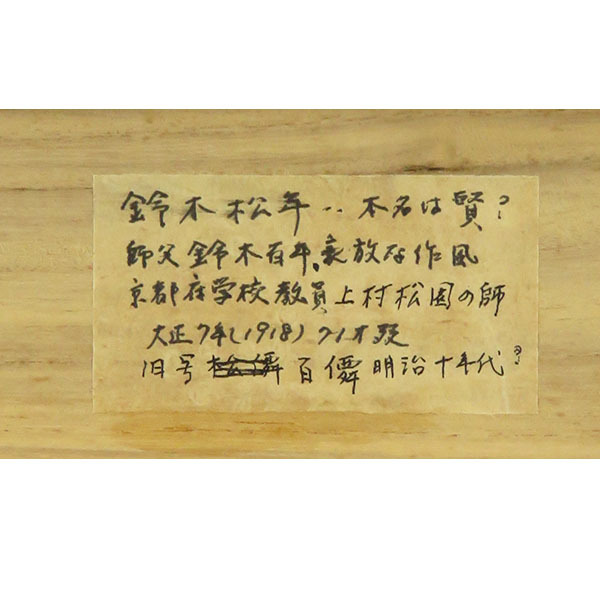 鈴木松年‥本名は賢?
師父鈴木百年、豪放な作風
京都府学校教員上村松園の師
大正7年(1918)71才歿
旧号松僊百僊明治十年代?